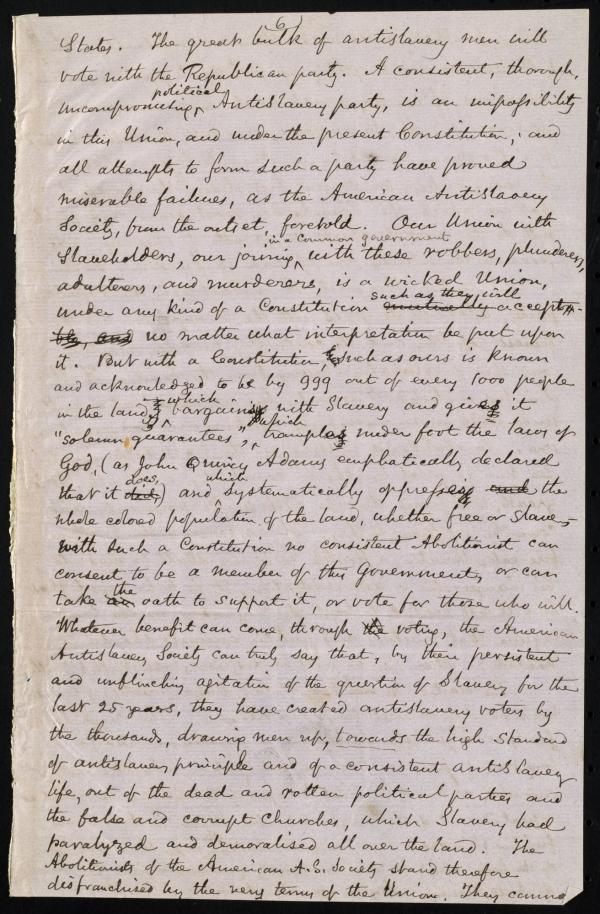 6)
States. The great bulk of antislavery men will
vote with the Republican party. A consistent, thorough,
political
uncompromising Antislavery party, is an impossibility
in this Union, and under the present Constitution; and
all attempts to form such a party have proved
miserable failures, as the American AntiSlavery
Society, from the outset, foretold. Our Union with
in a common government
Slaveholders, our joining with these robbers, plunderers,
adulterers, and murderers, is a wicked Union,
such as they will
under any kind of a Constitution mutually accept
ble, and no matter what interpretation be put upon
it. But with a Constitution, such as ours is known
and acknowledged to be by 999 out of every 1000 people
which
in the land, bargains with Slavery and gives it
which
"solemn guarantees," tramples under foot the laws of
God, (as John Quincy Adams emphatically declared
does, which
that it did,) and systematically oppresses and the
whole colored population of the land, whether free or slave,–
with such a Constitution no consistent Abolitionist can
consent to be a member of this Government, or can
the
take an oath to support it, or vote for those who will.
Whatever benefit can come, through the voting, the American
Antislavery Society can truly say that, by their persistent
and unflinching agitation of the question of Slavery for the
last 25 years, they have created antislavery voters by
the thousands, drawing men up, towards the high standard
of antislavery principle and of a consistent antislavery
life, out of the dead and rotten political parties and
the false and corrupt churches, which Slavery had
paralyzed and demoralised all over the land. The
Abolitionists of the American A.S. Society stand therefore
disfranchised by the very terms of the Union. They cannot